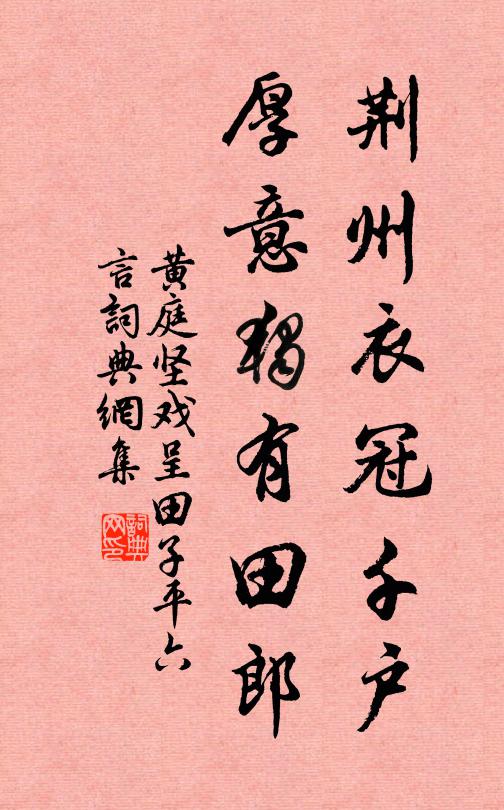 荆州衣冠千户
厚意独有田郎
黄庭坚戏呈田子平六
言詞典網集
詞典网印